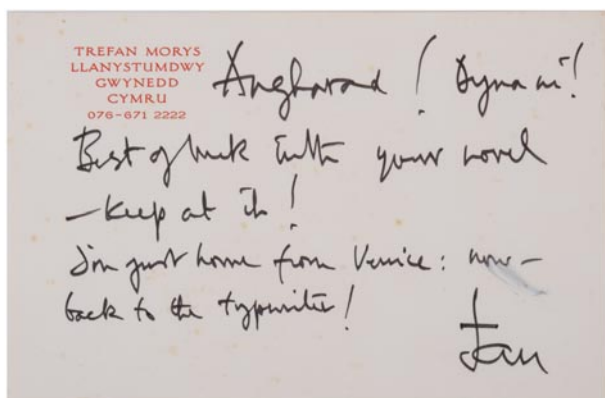 TREFAN MORYS
LLANYSTUMDWY
GWYNEDD
CYMRU
076-671 2222
Angharad! Dyna ni!
Best of luck with your novel
—keep at it!
I'm just home from Venice: now—
back to the typewriter!
Jan